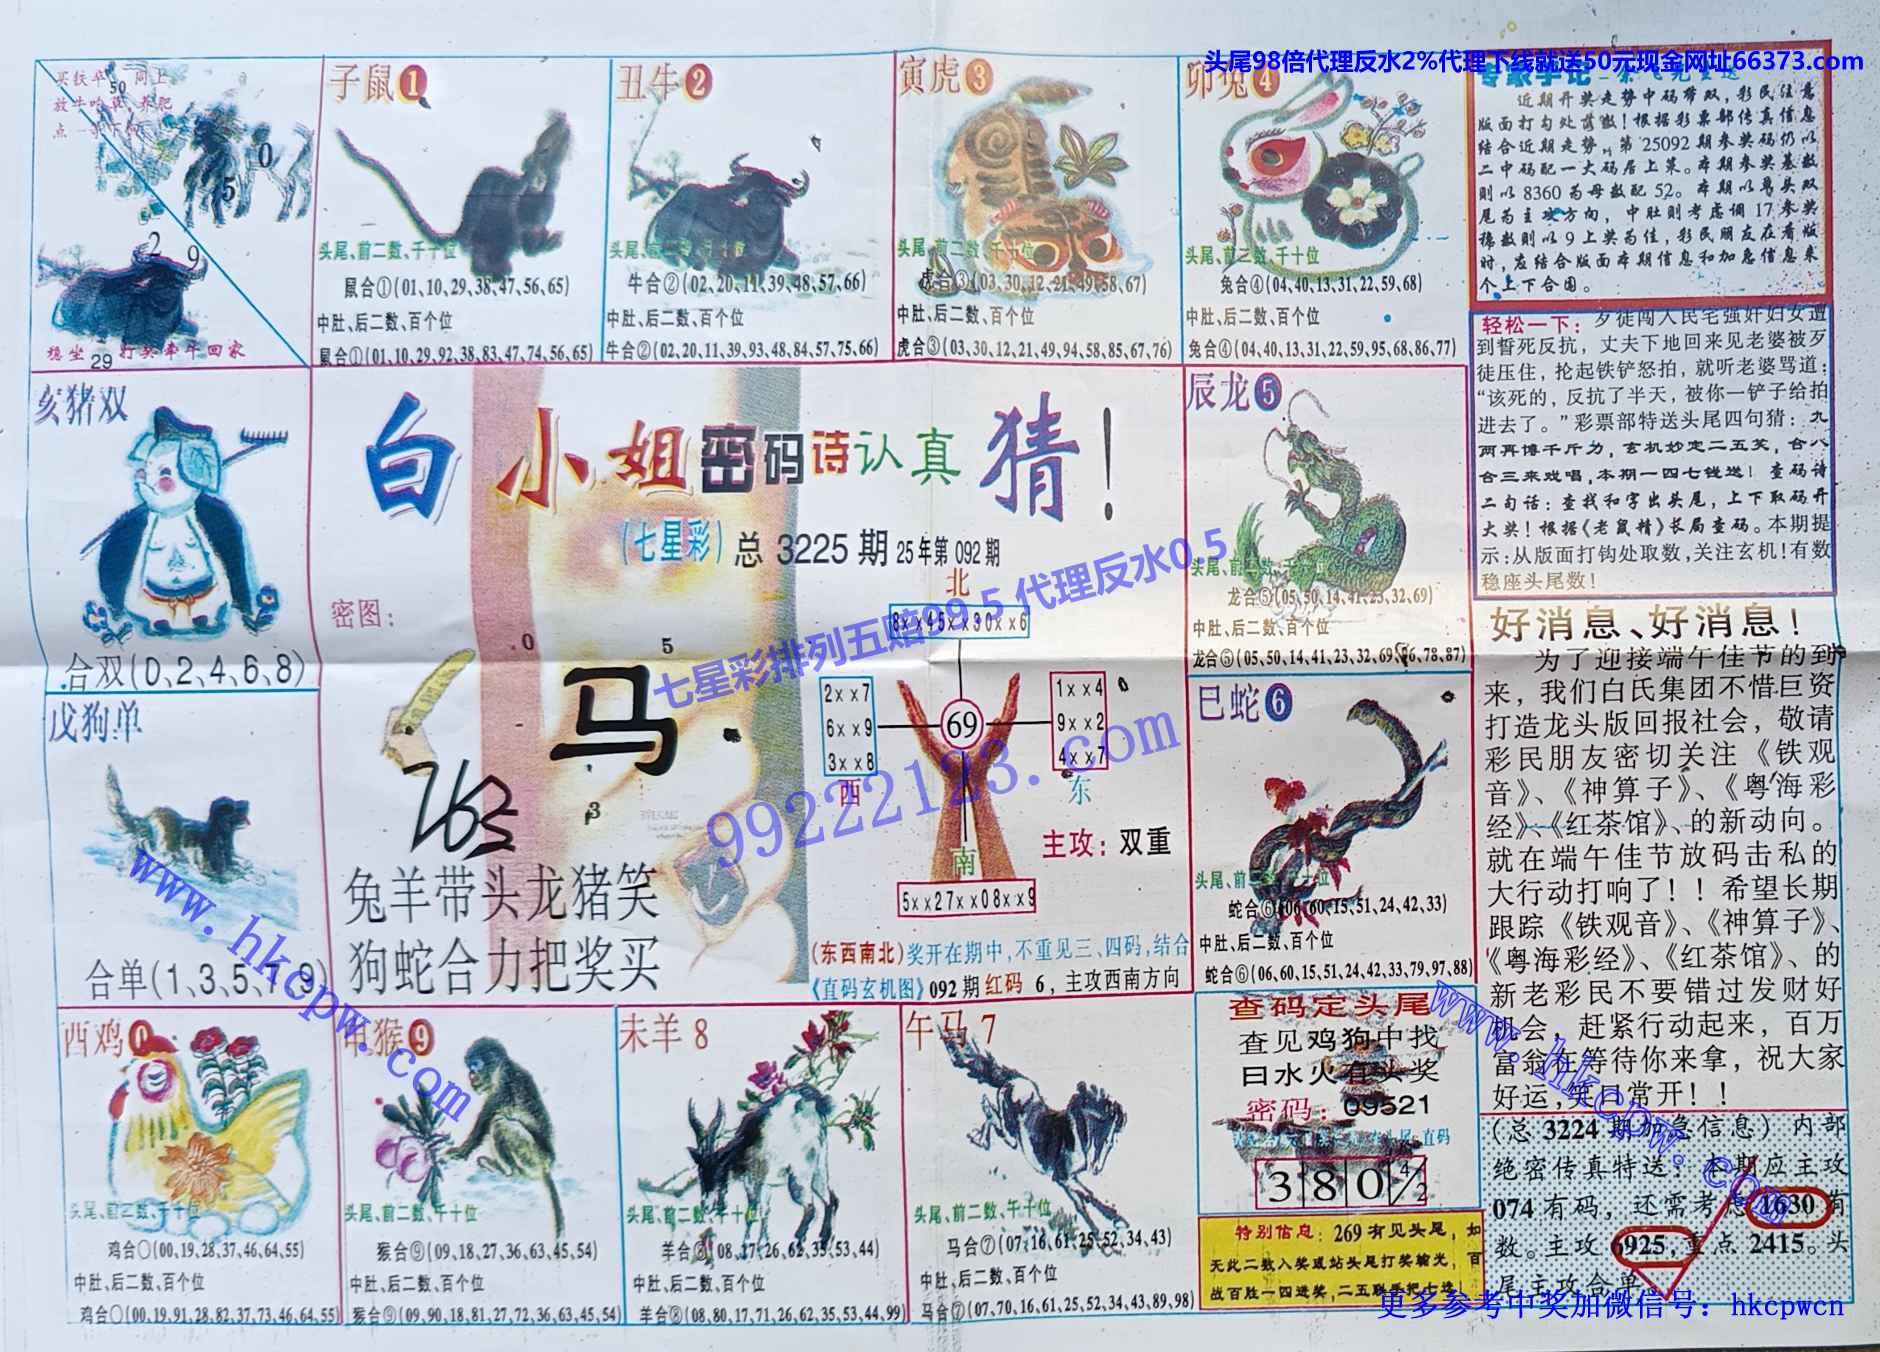 头尾98倍代理反水2%代理下线就送50元现金网址66373.com
买铁卒 同上
放牛吃草 养肥
点一 下
50
0
5
2
9
稳坐 打头牵牛回家
29
子鼠1
头尾、前二数、千十位
鼠合①(01,10,29,38,47,56,65)
中肚、后二数、百个位
鼠合①(01,10,29,92,38,83,47,74,56,65)
丑牛2
头尾、前二数、千十位
牛合②(02,20,11,39,48,57,66)
中肚、后二数、百个位
牛合②(02,20,11,39,93,48,84,57,75,66)
寅虎3
头尾、前二数、千十位
虎合③(03,30,12,21,49,58,67)
中肚、后二数、百个位
虎合③(03,30,12,21,49,94,58,85,67,76)
卯兔4
头尾、前二数、千十位
兔合④(04,40,13,31,22,59,68)
中肚、后二数、百个位
兔合④(04,40,13,31,22,59,95,68,86,77)
专家手记
近期开奖走势中码带双，彩民注意
版面打勾处首数！根据彩票部传真信息
结合近期走势，第25092期参奖码仍以
二中码配一大码居上策。本期参奖基数
则以8360为母数配52。本期以单头双
尾为主攻方向，中肚则考虑调17参奖
稀数则以9上奖为佳，彩民朋友在看版
时，应结合版面本期信息和加急信息来
个上下合围。
轻松一下：歹徒闯入民宅强奸妇女遭
到誓死反抗，丈夫下地回来见老婆被歹
徒压住，抡起铁铲怒拍，就听老婆骂道：
“该死的，反抗了半天，被你一铲子给拍
进去了。”彩票部特送头尾四句猜：九
两再博千斤力，玄机妙定二五奖，合八
合三来戏唱，本期一四七钱送！查码诗
二句话：查找和字出头尾，上下取码开
大奖！根据《老鼠精》长局查码。本期提
示：从版面打钩处取数，关注玄机！有数
稳座头尾数！
亥猪双
合双(0、2、4、6、8)
白小姐密码诗认真猜！
(七星彩) 总 3225 期 25年第 092 期
密图：
0
5
马
3
763
兔羊带头龙猪笑
狗蛇合力把奖买
北
8xx45xx30xx6
2xx7
6xx9
3xx8
西
69
1xx4
9xx2
4xx7
东
南
5xx27xx08xx9
主攻：双重
(东西南北)奖开在期中，不重见三、四码，结合
《直码玄机图》092期红码 6，主攻西南方向
七星彩排列五赔99.5 代理反水0.5
99222123.com
辰龙5
头尾、前二数、千十位
龙合⑤(05,50,14,41,23,32,69)
中肚、后二数、百个位
龙合⑤(05,50,14,41,23,32,69,96,78,87)
好消息、好消息！
为了迎接端午佳节的到
来，我们白氏集团不惜巨资
打造龙头版回报社会，敬请
彩民朋友密切关注《铁观
音》、《神算子》、《粤海彩
经》、《红茶馆》、的新动向。
就在端午佳节放码击私的
大行动打响了！！希望长期
跟踪《铁观音》、《神算子》、
《粤海彩经》、《红茶馆》、的
新老彩民不要错过发财好
机会，赶紧行动起来，百万
富翁在等待你来拿，祝大家
好运，笑口常开！！
戌狗单
合单(1、3、5、7、9)
www.hkcpw.com
巳蛇6
头尾、前二数、千十位
蛇合⑥(06,60,15,51,24,42,33)
中肚、后二数、百个位
蛇合⑥(06,60,15,51,24,42,33,79,97,88)
酉鸡0
头尾、前二数、千十位
鸡合〇(00,19,28,37,46,64,55)
中肚、后二数、百个位
鸡合〇(00,19,91,28,82,37,73,46,64,55)
申猴9
头尾、前二数、千十位
猴合⑨(09,18,27,36,63,45,54)
中肚、后二数、百个位
猴合⑨(09,90,18,81,27,72,36,63,45,54)
未羊8
头尾、前二数、千十位
羊合⑧(08,17,26,62,35,53,44)
中肚、后二数、百个位
羊合⑧(08,80,17,71,26,62,35,53,44,99)
午马7
头尾、前二数、千十位
马合⑦(07,16,61,25,52,34,43)
中肚、后二数、百个位
马合⑦(07,70,16,61,25,52,34,43,89,98)
查码定头尾
查见鸡狗中找
日水火有头奖
密码：09521
380 4/2
特别信息：269有见头尾，如
无此二数入奖或站头尾打奖输光，百
战百胜一四进奖，二五联手把七送！
www.hkcpw.com
(总 3224 期加急信息) 内部
绝密传真特送：本期应主攻
074有码，还需考虑1630有
数。主攻6925，重点2415。头
尾主攻合单
更多参考中奖加微信号：hkcpwcn